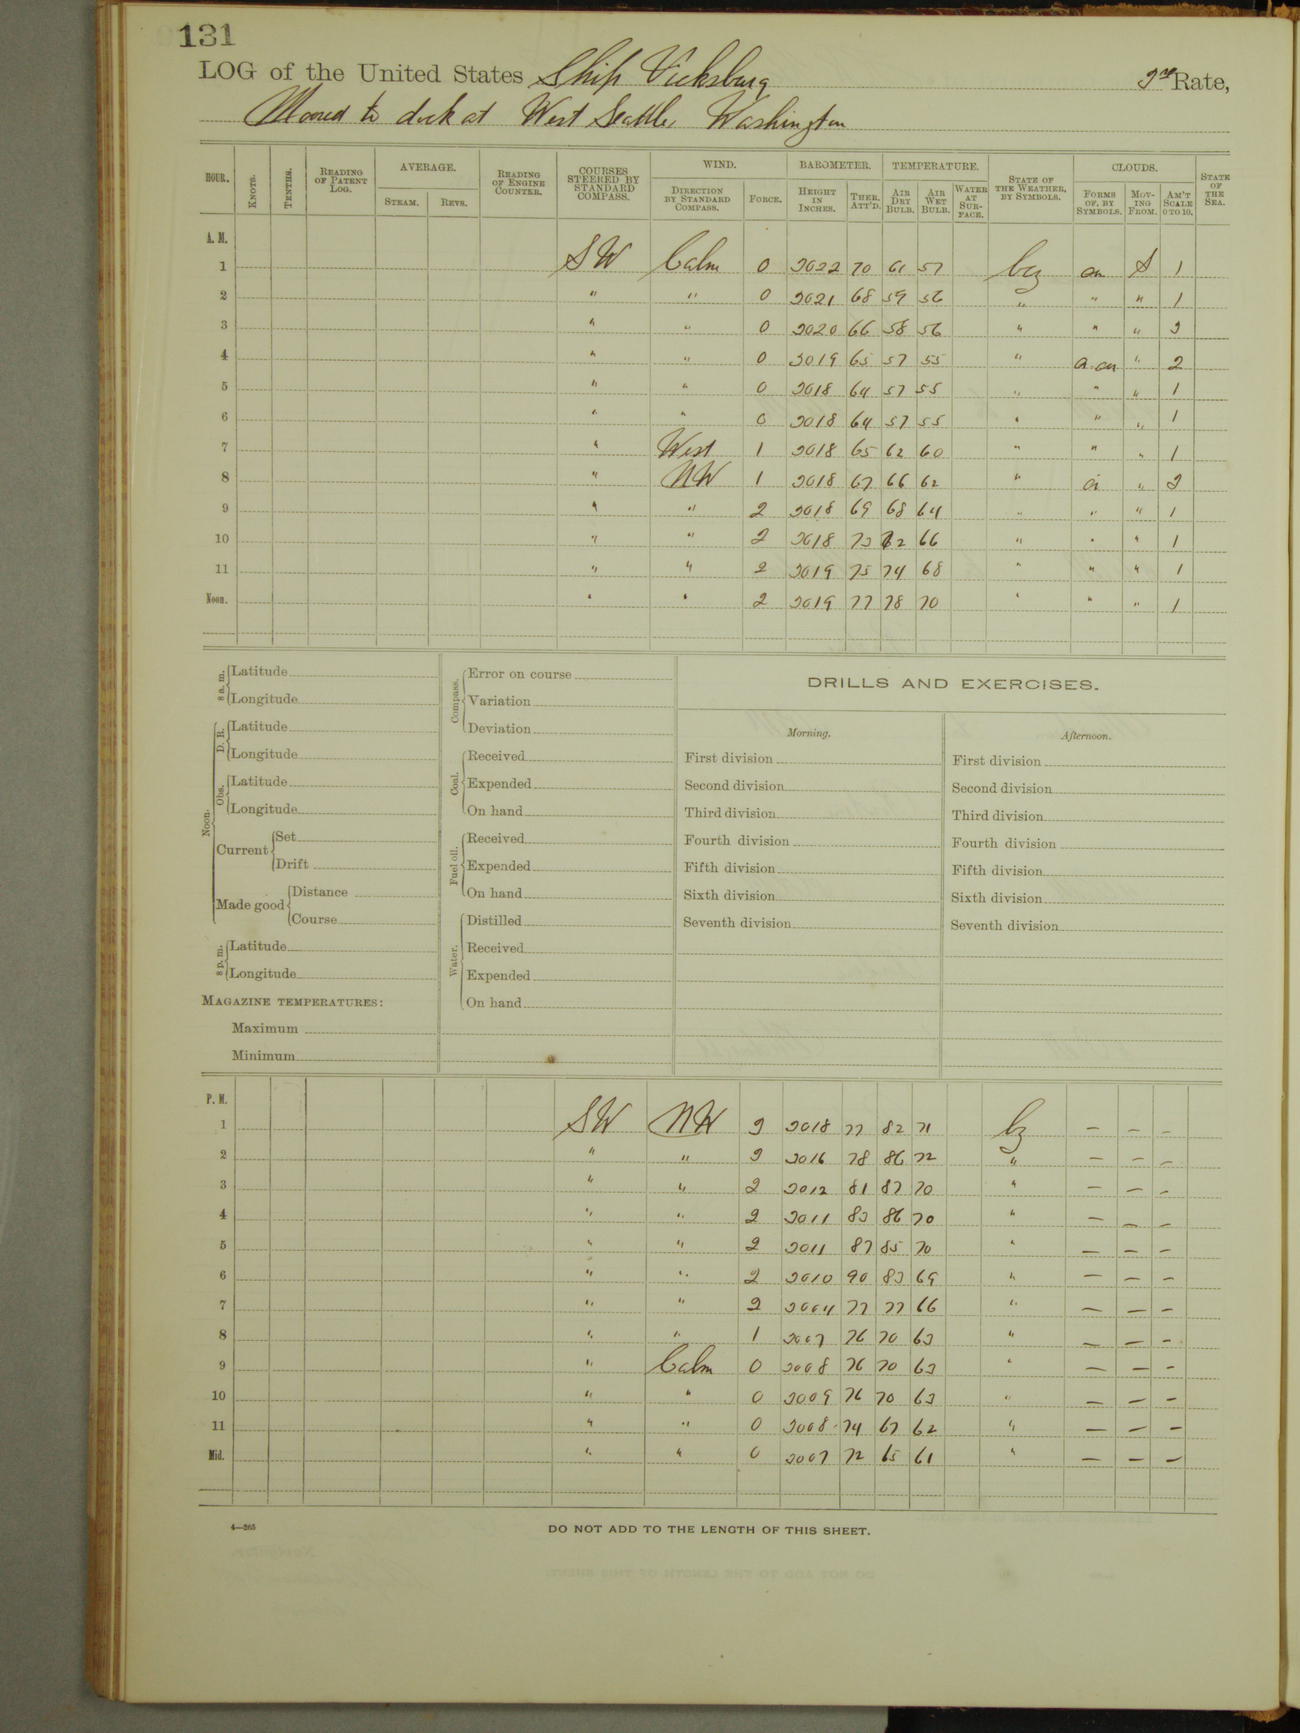 131
LOG of the United States Ship Vicksburg 3rd Rate,
Moored to dock at West Seattle, Washington
HOUR. KNOTS. TENTHS. READING OF PATENT LOG. AVERAGE. STEAM. REVS. READING OF ENGINE COUNTER. COURSES STEERED BY STANDARD COMPASS. WIND. DIRECTION BY STANDARD COMPASS. FORCE. BAROMETER. HEIGHT IN INCHES. THER. ATT'D. TEMPERATURE. AIR DRY BULB. AIR WET BULB. WATER AT SURFACE. STATE OF THE WEATHER, BY SYMBOLS. CLOUDS. FORMS OF, BY SYMBOLS. MOVING FROM. AM'T SCALE 0 TO 10. STATE OF THE SEA.
A. M.
1 SW Calm 0 3022 70 61 57 bcz cu S 1
2 " " 0 3021 68 59 56 " " " 1
3 " " 0 3020 66 58 56 " " " 3
4 " " 0 3019 65 57 55 " a.cu " 2
5 " " 0 3018 64 57 55 " " " 1
6 " " 0 3018 64 57 55 " " " 1
7 " West 1 3018 65 62 60 " " " 1
8 " NW 1 3018 67 66 62 " ci " 3
9 " " 2 3018 69 68 64 " " " 1
10 " " 2 3018 73 72 66 " " " 1
11 " " 2 3019 75 74 68 " " " 1
Noon. " " 2 3019 77 78 70 " " " 1
8 a. m. Latitude
Longitude
Noon. D. R. Latitude
Longitude
Obs. Latitude
Longitude
Current Set
Drift
Made good Distance
Course
8 p. m. Latitude
Longitude
MAGAZINE TEMPERATURES:
Maximum
Minimum
Compass. Error on course
Variation
Deviation
Coal. Received
Expended
On hand
Fuel oil. Received
Expended
On hand
Water. Distilled
Received
Expended
On hand
DRILLS AND EXERCISES.
Morning.
First division
Second division
Third division
Fourth division
Fifth division
Sixth division
Seventh division
Afternoon.
First division
Second division
Third division
Fourth division
Fifth division
Sixth division
Seventh division
P. M.
1 SW NW 3 3018 77 82 71 bz — — —
2 " " 3 3016 78 86 72 " — — —
3 " " 2 3012 81 87 70 " — — —
4 " " 2 3011 83 86 70 " — — —
5 " " 2 3011 87 85 70 " — — —
6 " " 2 3010 90 83 69 " — — —
7 " " 2 3004 77 77 66 " — — —
8 " " 1 3007 76 70 63 " — — —
9 " Calm 0 3008 76 70 63 " — — —
10 " " 0 3009 76 70 63 " — — —
11 " " 0 3008 74 67 62 " — — —
Mid. " " 0 3007 72 65 61 " — — —
4—265
DO NOT ADD TO THE LENGTH OF THIS SHEET.